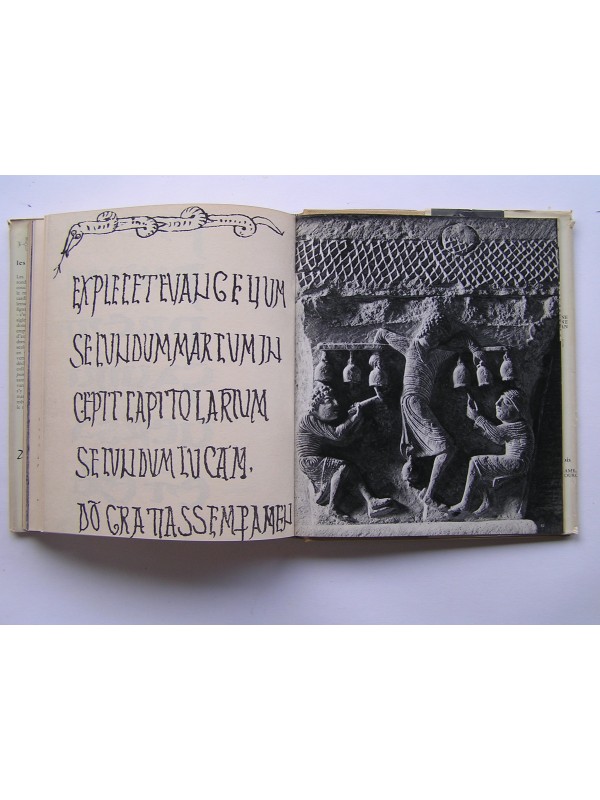 les
2
EXPLECET EVANGELIUM
SECUNDUM MARCUM IN
CEPIT CAPITOLARIUM
SECUNDUM LUCAM.
DŌ GRATIAS SEMꝑ AMEN